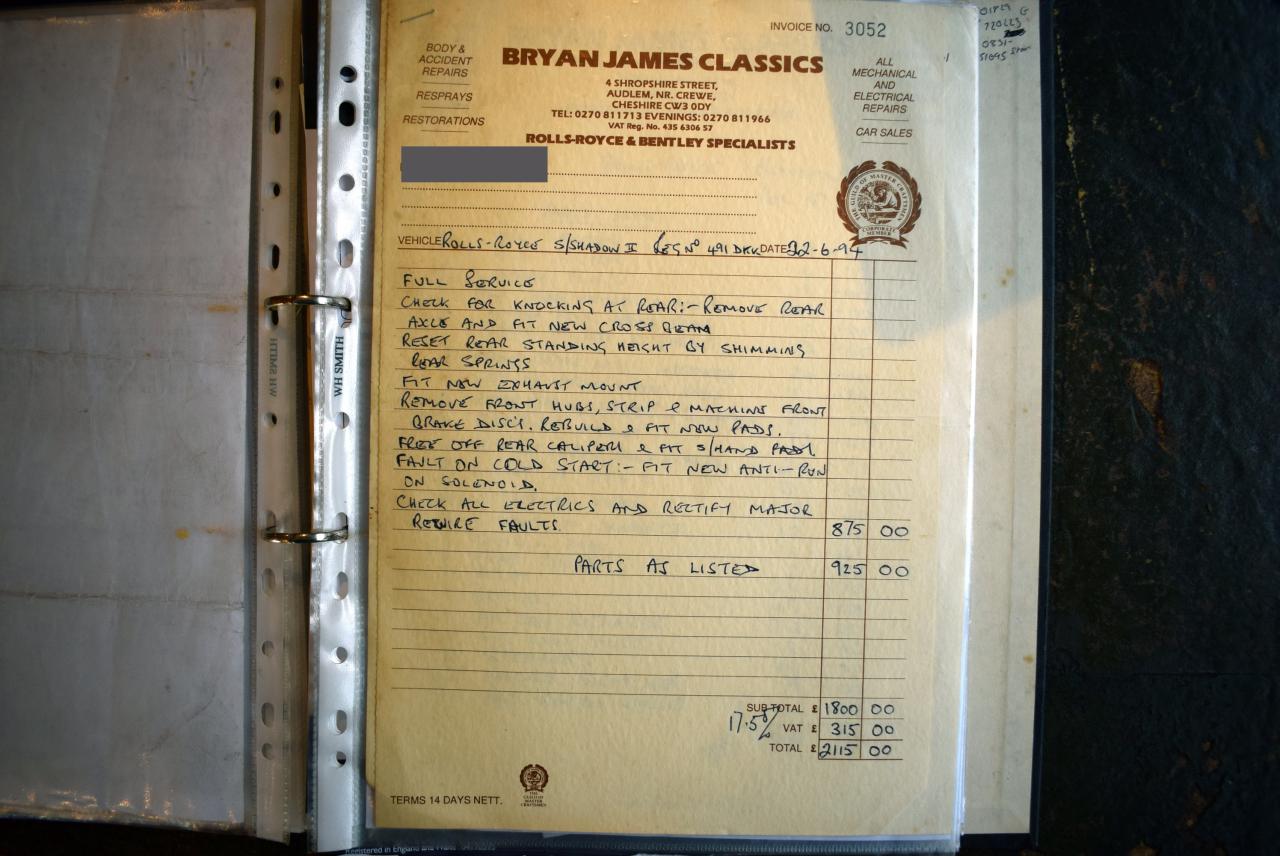 INVOICE NO. 3052
BODY &
ACCIDENT
REPAIRS
RESPRAYS
RESTORATIONS
BRYAN JAMES CLASSICS
4 SHROPSHIRE STREET,
AUDLEM, NR. CREWE,
CHESHIRE CW3 0DY
TEL: 0270 811713 EVENINGS: 0270 811966
VAT Reg. No. 435 6306 57
ROLLS-ROYCE & BENTLEY SPECIALISTS
ALL
MECHANICAL
AND
ELECTRICAL
REPAIRS
CAR SALES
THE GUILD OF MASTER CRAFTSMEN
CORPORATE
MEMBER
VEHICLE ROLLS-ROYCE S/SHADOW II REG Nº 491 DKK DATE 22-6-94
FULL SERVICE
CHECK FOR KNOCKING AT REAR:- REMOVE REAR
AXLE AND FIT NEW CROSS BEAM
RESET REAR STANDING HEIGHT BY SHIMMING
REAR SPRINGS
FIT NEW EXHAUST MOUNT
REMOVE FRONT HUBS, STRIP & MACHINE FRONT
BRAKE DISCS. REBUILD & FIT NEW PADS.
FREE OFF REAR CALIPERS & FIT S/HAND PADS.
FAULT ON COLD START:- FIT NEW ANTI-RUN
ON SOLENOID.
CHECK ALL ELECTRICS AND RECTIFY MAJOR
REWIRE FAULTS 875 00
PARTS AS LISTED 925 00
SUB TOTAL £ 1800 00
17.5% VAT £ 315 00
TOTAL £ 2115 00
TERMS 14 DAYS NETT.
THE
GUILD OF
MASTER
CRAFTSMEN
WH SMITH
WH SMITH
Registered in England